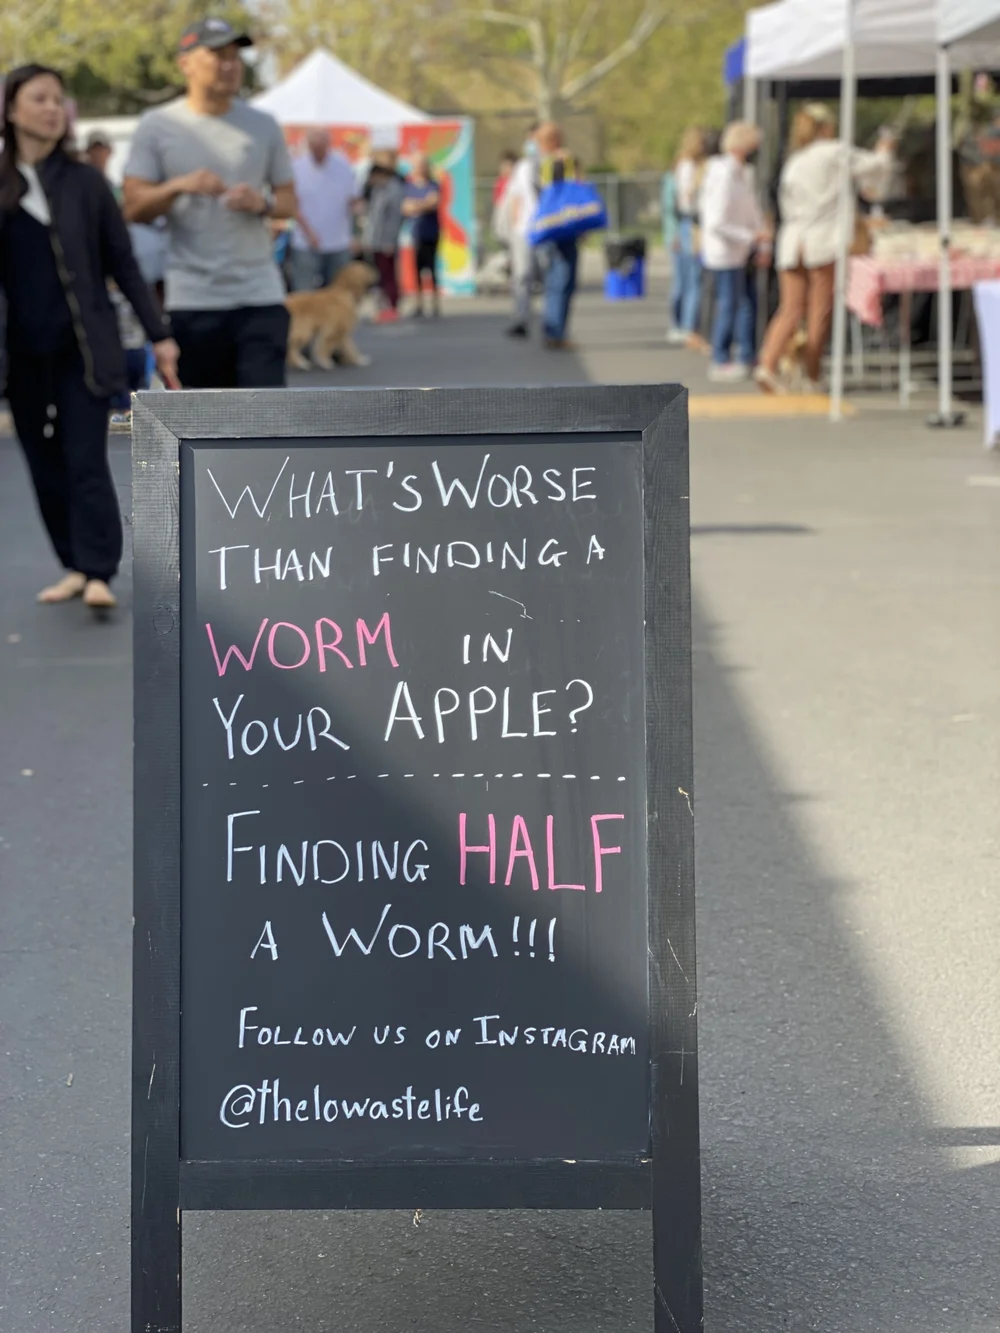 WHAT'S WORSE
THAN FINDING A
WORM IN
YOUR APPLE?
FINDING HALF
A WORM!!!
FOLLOW US ON INSTAGRAM
@thelowastelife